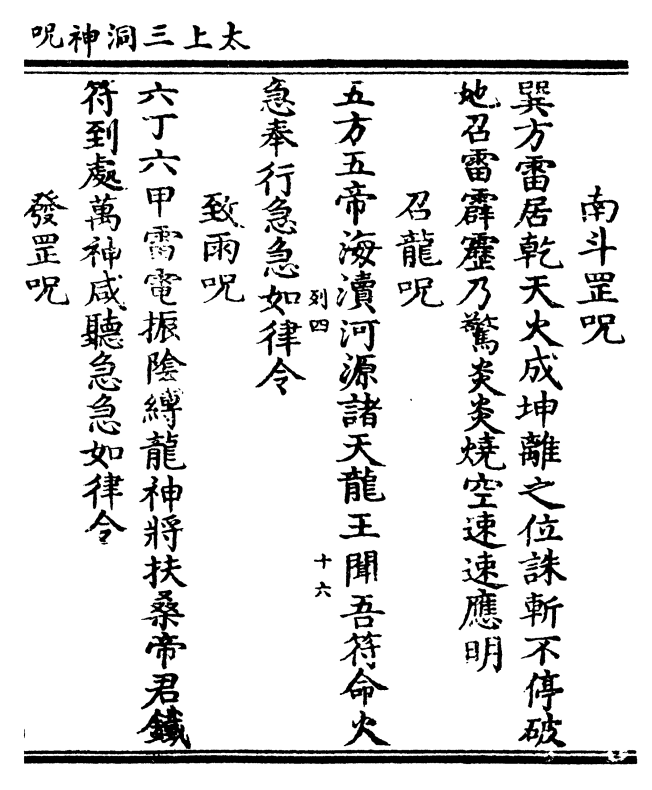 太上三洞神呪
南斗罡呪
巽方雷居乾天火成坤離之位誅斬不停破
地召雷霹靂乃驚炎炎燒空速速應明
召龍呪
五方五帝海瀆河源諸天龍王聞吾符命火
急奉行急急如律令
列四
十六
致雨呪
六丁六甲雷電振陰縛龍神將扶桑帝君鐵
符到處萬神咸聽急急如律令
發罡呪